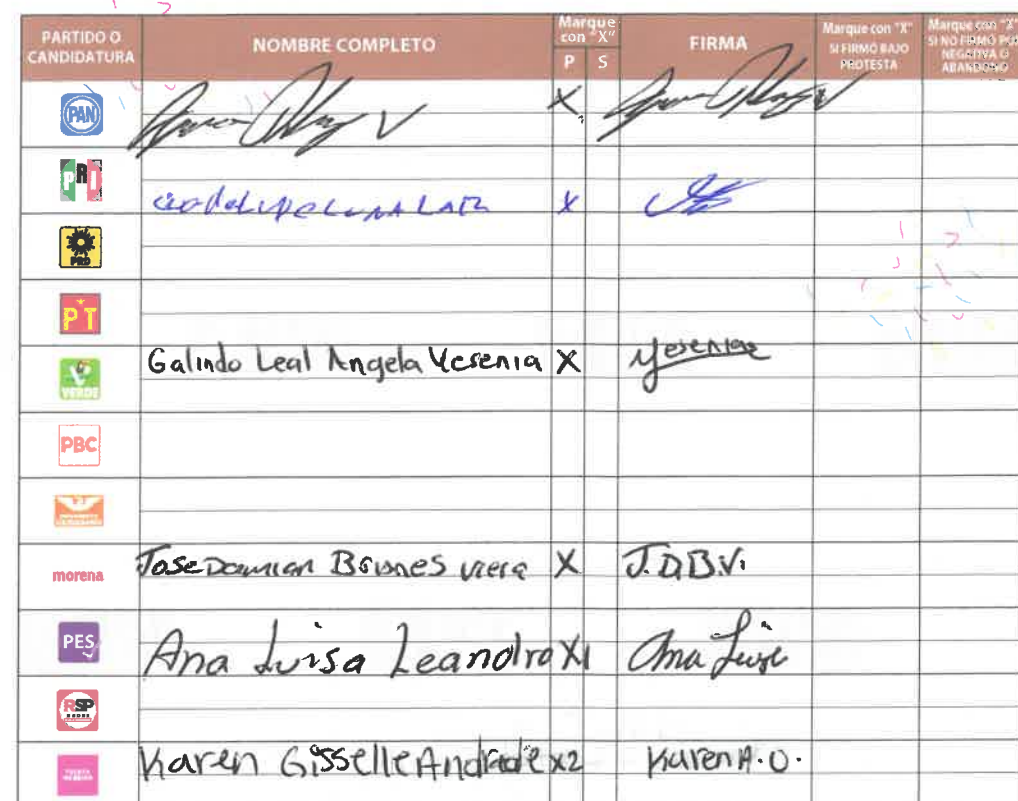 PARTIDO O CANDIDATURA NOMBRE COMPLETO Marque con "X" P S FIRMA Marque con "X" SI FIRMÓ BAJO PROTESTA Marque con "X" SI NO FIRMÓ POR NEGATIVA O ABANDONO
PAN X
PRI X
PRD
PT
VERDE Galindo Leal Angela Yesenia X Yesenia
PBC
morena Jose Damian Briones Viera X J.D.B.V.
PES Ana Luisa Leandro X1 Ana Luisa
RSP
Karen Gisselle Andrade x2 Karen A.O.